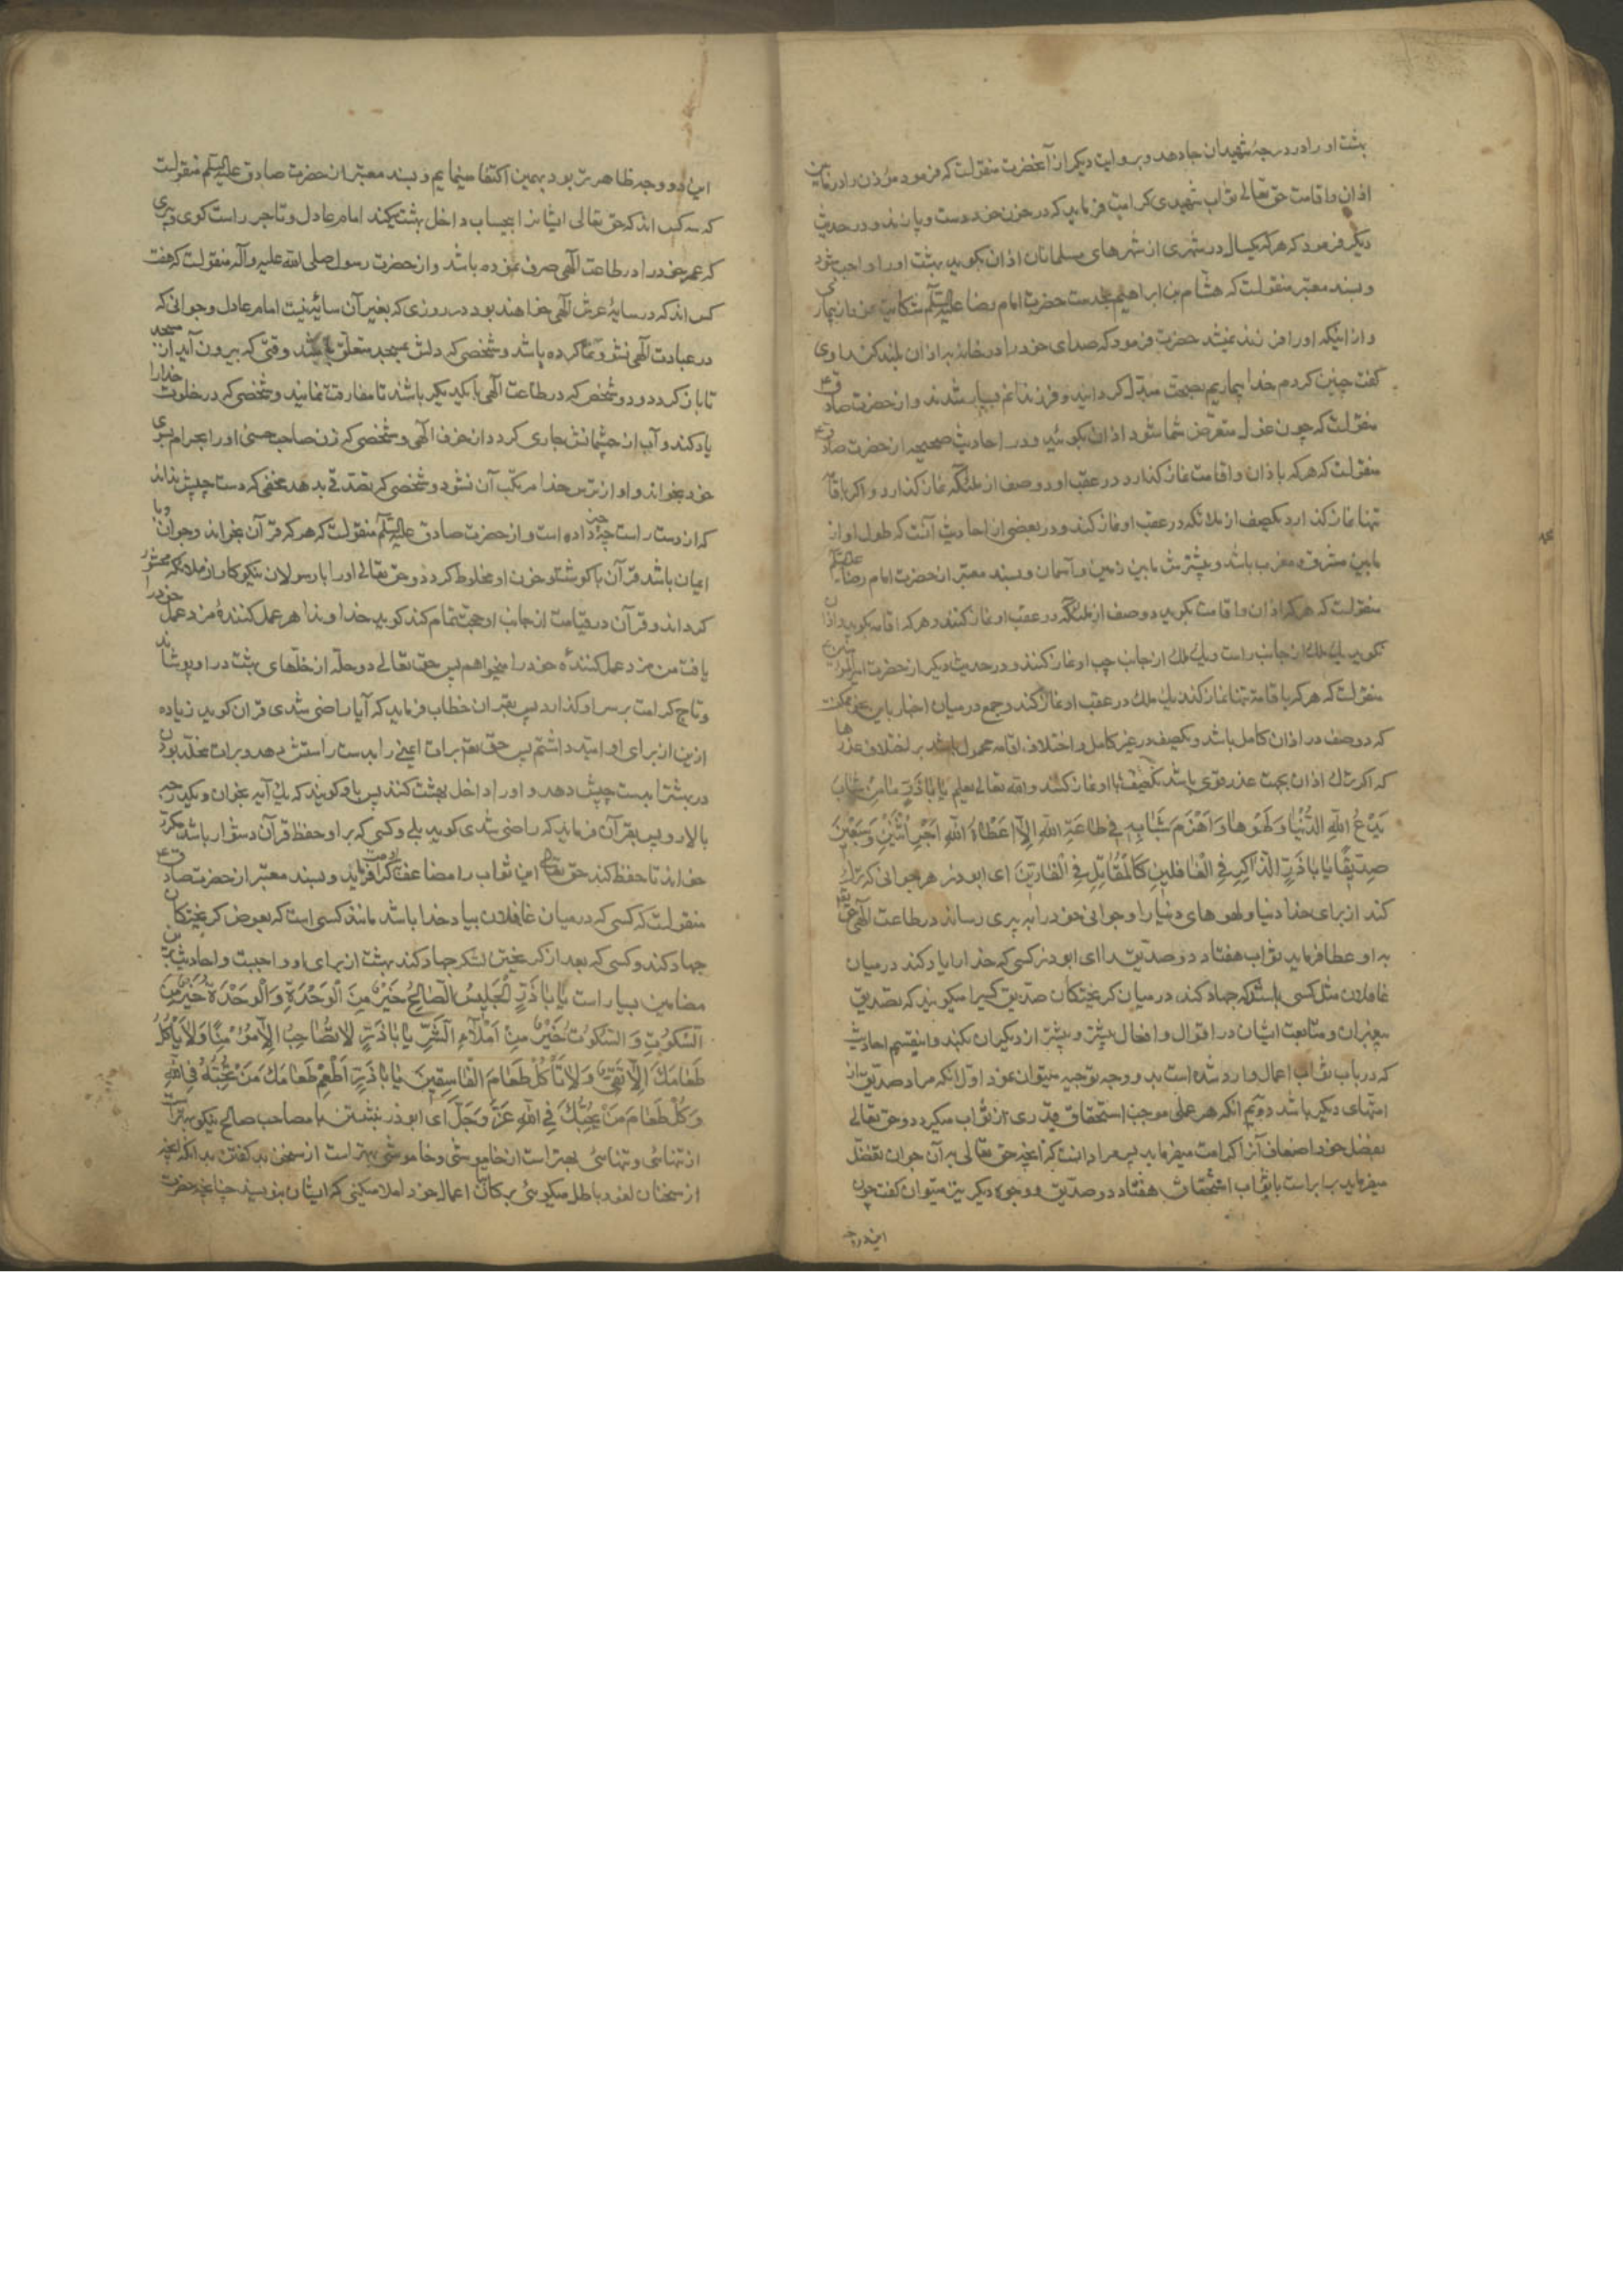 بهشت او را در درجهٔ شهیدان جا دهد و بروایت دیگر از آنحضرت منقولست که فرمود مؤذن را در مابین
اذان و اقامت حق تعالی ثواب شهیدی کرامت فرماید که در خون خود دست و پا زند و در حدیث
دیگر فرمود که هر که یکسال در شهری از شهرهای مسلمانان اذان بگوید بهشت او را واجب شود
و بسند معتبر منقولست که هشام بن ابراهیم بخدمت حضرت امام رضا علیه السلم شکایت نمود از بیماری
و از اینکه او را فرزند نمیشد حضرت فرمود که صدای خود را در خانه به اذان بلند کن راوی
گفت چنین کردم خدا بیماریم بصحت مبدل گردانید و فرزندانم بسیار شدند و از حضرت صادق ع
منقولست که چون غول متعرض شما شود اذان بگوئید و در احادیث صحیحه از حضرت صادق ع
منقولست که هر که با اذان و اقامت نماز گذارد در عقب او دو صف از ملئکه نماز گذارد و اگر باقامت
تنها نماز گذارد یکصف از ملائکه در عقب او نماز کند و در بعضی از احادیث آنست که طول او از
مابین مشرق و مغرب باشد و بیشترش مابین زمین و آسمان و بسند معتبر از حضرت امام رضا علیه السلم
منقولست که هر که اذان و اقامت بگوید دو صف از ملئکه در عقب او نماز کنند و هر که اقامه بگوید و اذان
نگوید یک ملک از جانب راست و یک ملک از جانب چپ او نماز کنند و در حدیث دیگر از حضرت امیرالمؤمنین ع
منقولست که هر که با قامة تنها نماز کند یک ملک در عقب او نماز کند و جمع در میان اخبار باین نحو ممکنست
که دو صف در اذان کامل باشد و یکصف در غیر کامل و اختلاف اقامه محمول باشد بر اختلاف عذرها
که اگر ترک اذان بجهت عذر قوی باشد یکصف با او نماز کنند والله تعالی یعلم یا اباذر ما من شاب
یدع الله الدنیا و لهوها و اهرم شبابه فی طاعة الله الا اعطاه الله اجر اثنین و سبعین
صدیقا یا اباذر الذاکر فی الغافلین کالمقاتل فی الفارین ای ابوذر هر جوانی که ترک
کند از برای خدا دنیا و لهوهای دنیا را و جوانی خود را به پیری رساند در طاعت الهی حقتعالی
به او عطا فرماید ثواب هفتاد دو صدیق را ای ابوذر کسی که خدا را یاد کند در میان
غافلان مثل کسی باشد که جهاد کند در میان گریختگان صدیق کسیرا میگویند که تصدیق
پیغمبران و متابعت ایشان در اقوال و افعال بیشتر و پیشتر از دیگران بکند و اینقسم احادیث
که در باب ثواب اعمال وارد شده است بدو وجه توجیه میتوان نمود اول آنکه مراد صدیق از
امتهای دیگر باشد دویم آنکه هر عملی موجب استحقاق قدری از ثواب میگردد و حق تعالی
بفضل خود اضعاف آنرا کرامت میفرماید پس مراد آنست که آنچه حق تعالی به آن جوان تفضل
میفرماید برابر است با ثواب استحقاق هفتاد دو صدیق و وجوه دیگر نیز میتوان گفت چون
این دو وجه
این دو وجه ظاهرتر بود بهمین اکتفا مینمایم و بسند معتبر از حضرت صادق علیه السلم منقولست
که سه کس اند که حق تعالی ایشانرا بیحساب داخل بهشت میکند امام عادل و تاجر راست گوی و پیری
که عمر خود را در طاعت الهی صرف نموده باشد و از حضرت رسول صلی الله علیه و آله منقولست که هفت
کس اند که در سایهٔ عرش الهی خواهند بود در روزی که بغیر آن سایه نیست امام عادل و جوانی که
در عبادت الهی نشو و نما کرده باشد و شخصی که دلش بمسجد متعلق باشد وقتی که بیرون آید از مسجد
تا باز گردد و دو شخص که در طاعت الهی با یکدیگر باشند تا مفارقت نمایند و شخصی که در خلوت خدا را
یاد کند و آب از چشمانش جاری گردد از خوف الهی و شخصی که زن صاحب حسنی او را بحرام بسوی
خود بخواند و او از ترس خدا مرتکب آن نشود و شخصی که تصدقی بدهد مخفی که دست چپش نداند
که از دست راست چه چیز داده است و از حضرت صادق علیه السلم منقولست که هر که قرآن بخواند و جوان و با
ایمان باشد قرآن با گوشت و خون او مخلوط گردد و حق تعالی او را با رسولان نیکوکار از ملائکه محشور
گرداند و قرآن در قیامت از جانب او حجت تمام کند گوید خداوندا هر عمل کنندهٔ مزد عمل خود را
یافت من مزد عمل کننده خود را میخواهم پس حق تعالی دو حله از حلهای بهشت در او پوشاند
و تاج کرامت بر سر او گذارد پس بقرآن خطاب فرماید که آیا راضی شدی قرآن گوید زیاده
ازین از برای او امید داشتم پس حقتعالی برات ایمنی را بدست راستش دهد و برات مخلد بودن
در بهشترا بدست چپش دهد و او را داخل بهشت کنند پس باو گویند که یک آیه بخوان و یکدرجه
بالا رو پس بقرآن فرماید که راضی شدی گوید بلی و کسی که بر او حفظ قرآن دشوار باشد مکرر
خواند تا حفظ کند حق تعالی این ثواب را مضاعف باو کرامت فرماید و بسند معتبر از حضرت صادق ع
منقولست که کسی که در میان غافلان بیاد خدا باشد مانند کسی است که بعوض گریختگان
جهاد کند و کسی که بعد از گریختن لشکر جهاد کند بهشت از برای او واجبست و احادیث برین
مضامین بسیار است یا اباذر الجلیس الصالح خیر من الوحدة و الوحدة خیر من
السکوت و السکوت خیر من املاء الشر یا اباذر لا تصاحب الا مؤمنا و لا یأکل
طعامک الا تقی و لا تأکل طعام الفاسقین یا اباذر اطعم طعامک من تحبه فی الله
و کل طعام من یحبک فی الله عز و جل ای ابوذر نشستن با مصاحب صالح نیکو بهتر است
از تنهائی و تنهائی بهتر است از خاموشی و خاموشی بهتر است از سخن بد گفتن بدانکه آنچه
از سخنان لغو و باطل میگوئی بر کاتبان اعمال خود املا میکنی که ایشان بنویسند چنانچه حضرت